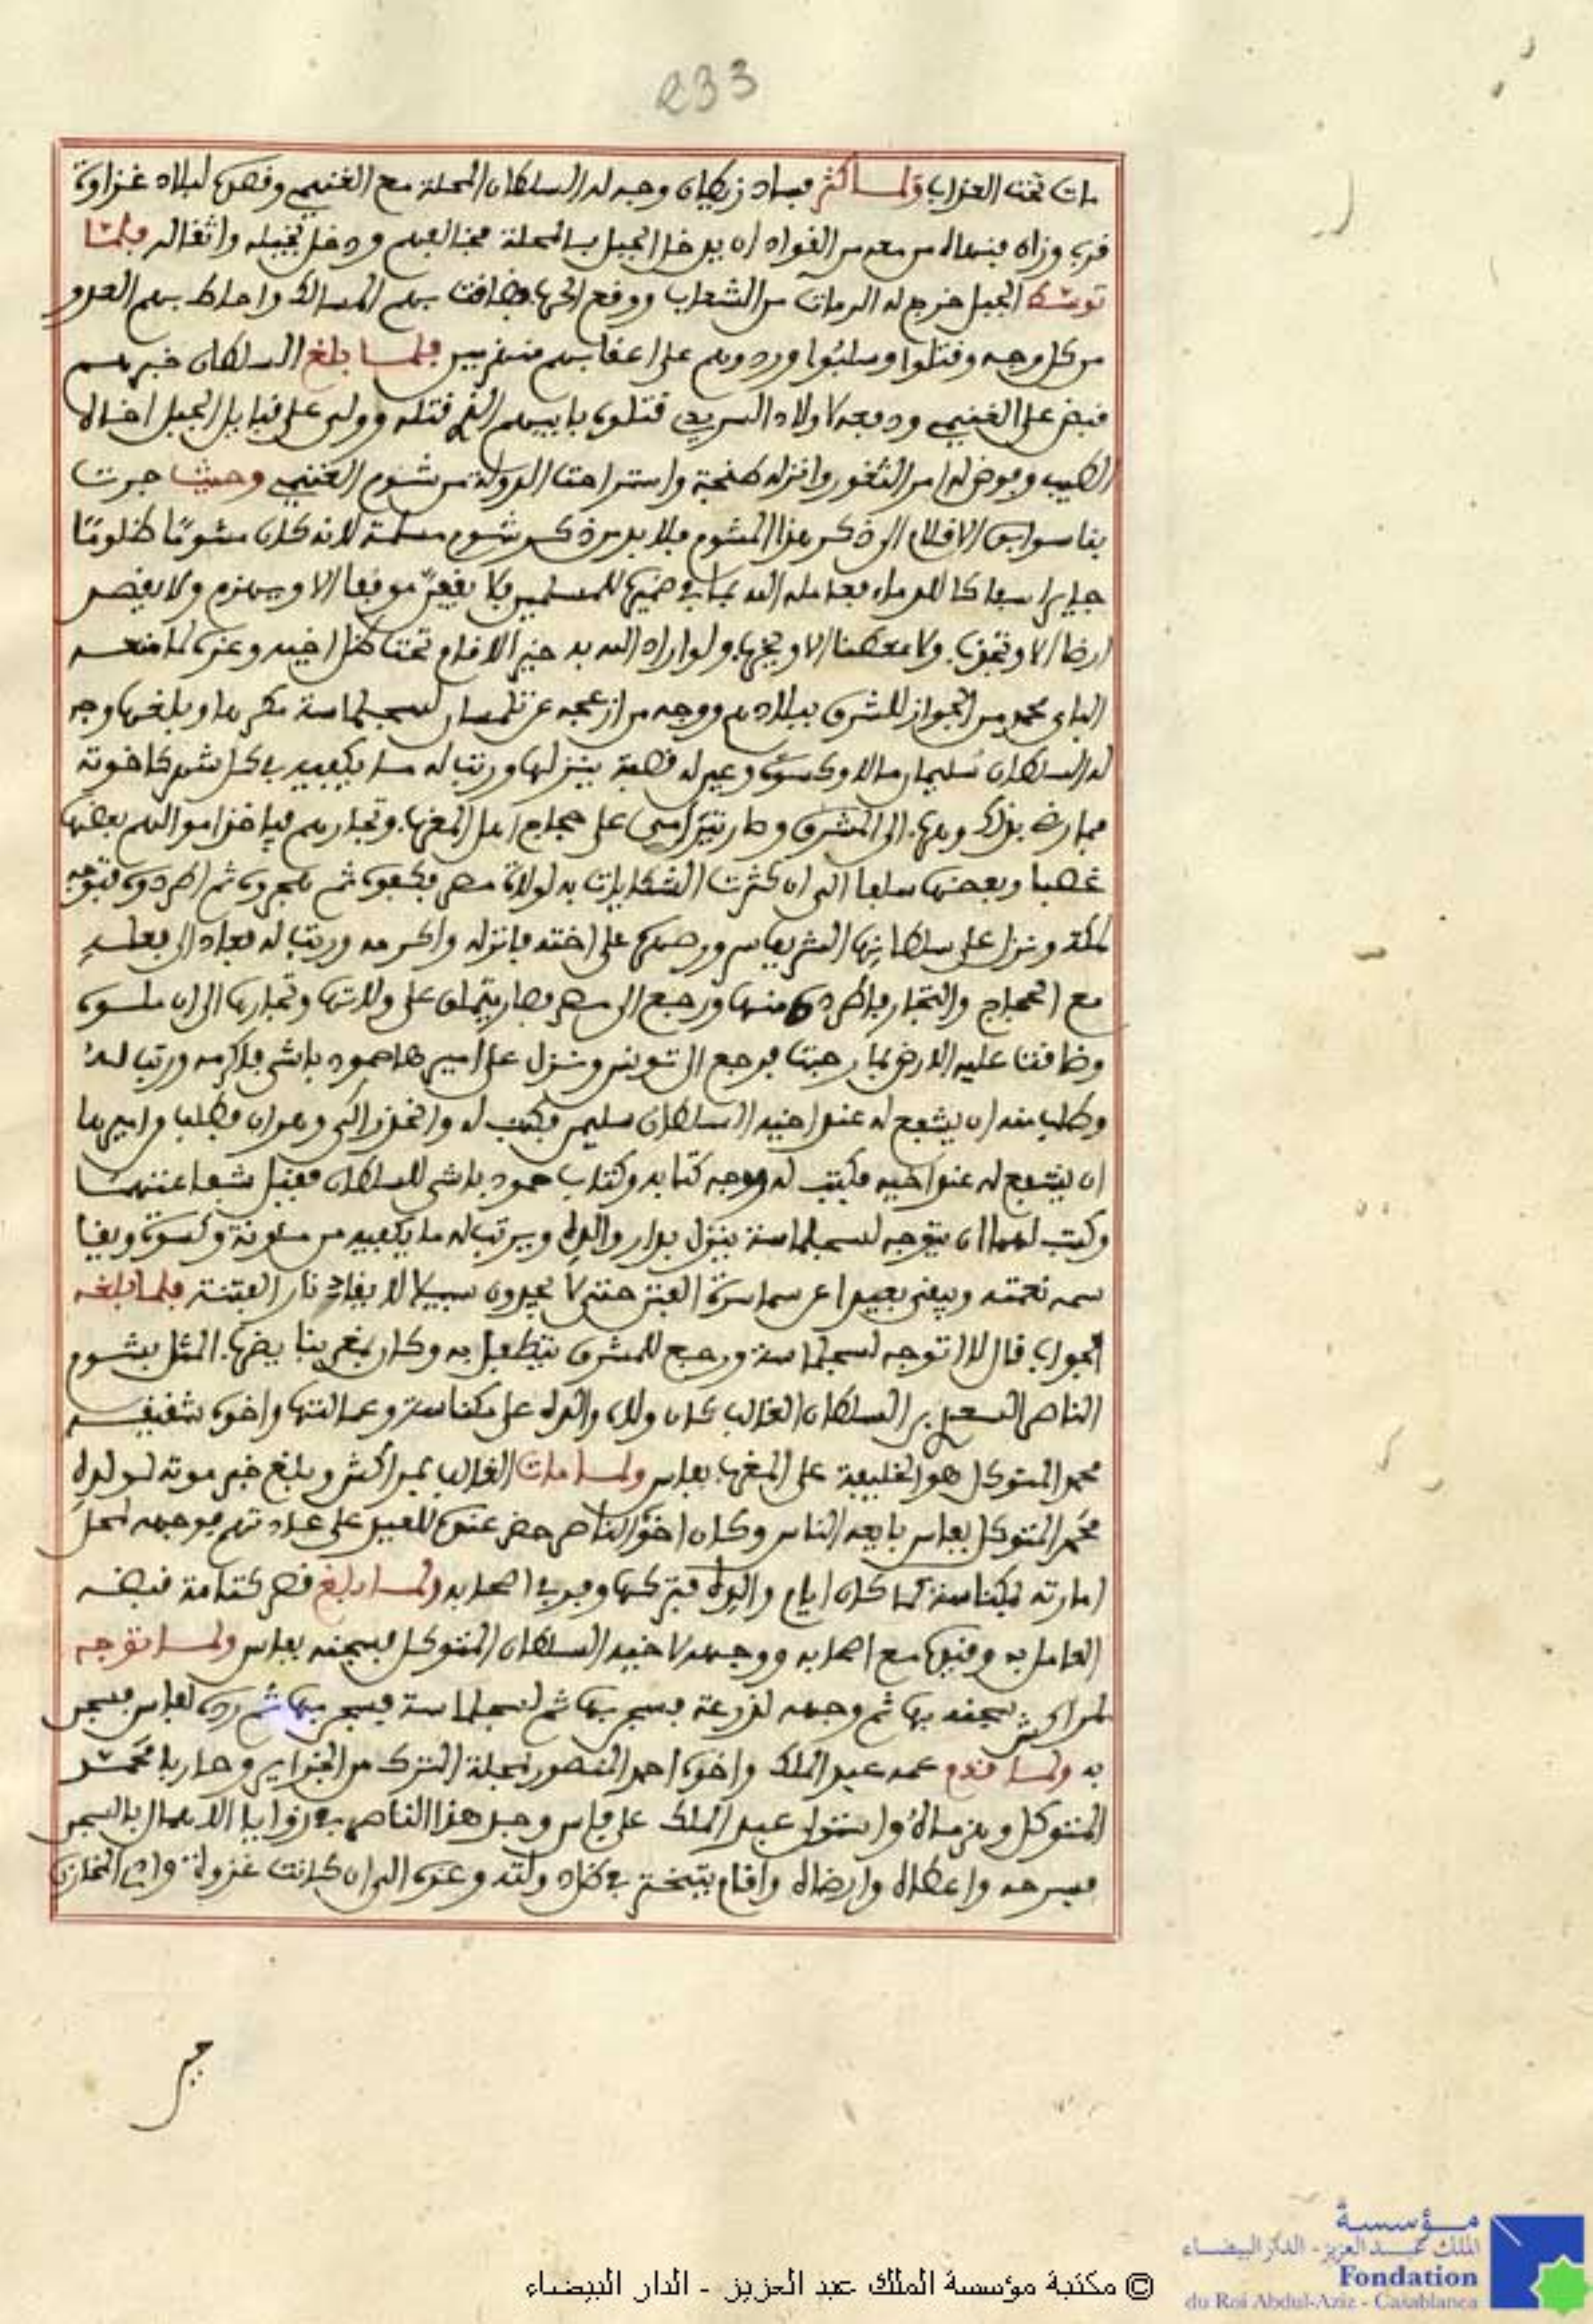 233
مات تحت العذاب ولما كثر فساد زيطان وجه له السلطان المحلة مع الغنيمي وقصد لبلاد غزاوة
قرب وزان فنهاه من معه من القواد ان يدخل الجبل بالمحلة فخالفهم ودخل بخيله واثقاله فلما
توسط الجبل خرج له الرمات من الشعاب ووقع الحرب فضاقت بهم المسالك واحاط بهم العدو
من كل وجه وقتلوا وسلبوا وردوهم على اعقابهم منهزمين فلما بلغ السلطان خبرهم
قبض على الغنيمي ودفعه لاولاد السريدي قتلوه بابيهم الذي قتله وولى على قبايل الجبل اخاه
الطيب وفوض له امر الثغور وانزله طنجة واستراحت الدولة من شوم الغنيمي وحيث جرت
بنا سوابق الاقلام الى ذكر هذا المشوم فلا بد من ذكر شوم مسلمة لانه كان مشوما ظلوما
جايرا سفاكا للدماء فعامله الله بما في ضميره للمسلمين فلا يقف موقفا الا وينهزم ولا يقصد
ارضا الا وتخرب ولا معطنا الا ويخرب ولو اراد الله به خير الاقام تحت ظل اخيه وعزه لما منعه
الباي محمد من الجواز للمشرق ببلادهم ووجه من ازعجه عن تلمسان لسجلماسة مكرها وبلغها وجه
له السلطان سليمان مالا وكسوة وعين له قصبة ينزلها ورتب له ما يكفيه في كل شهر كاخوته
فما رضي بذلك وهرب الى المشرق وصار يترامى على حجاج اهل المغرب وتجارهم فياخذ اموالهم بعضها
غصبا وبعضها سلفا الى ان كثرت الشكايات به لولاة مصر فكفوه ثم هجروه ثم اطردوه فتوجه
لمكة ونزل على سلطانها الشريف سرور صهره على اخته فانزله واكرمه ورتب له فعاد الى فعله
مع الحجاج والتجار فاطرده منها ورجع الى مصر فصار يتملق على ولاتها وتجارها الى ان ملوه
وضاقت عليه الارض بما رحبت فرجع الى تونس ونزل على اميرها حمود باشى فاكرمه ورتب له
وطلب منه ان يشفع له عند اخيه السلطان سليمن فكتب له وانحدر الى وهران فطلب من اميرها
ان يشفع له عند اخيه فكتب له ووجه كتابه وكتاب حمود باشى للسلطان فقبل شفاعتهما
وكتب لهما ان يتوجه لسجلماسة ينزل بدار والده ويرتب له ما يكفيه من مئونة وكسوة وبقا
سمه نعمته ويبقى بعيدا عن سماسرة الفتن حتى لا يجدون سبيلا لايقاد نار الفتنة فلما بلغه
الجواب قال لا اتوجه لسجلماسة ورجع للمشرق يتطفل به وكان بمغربنا يضرب المثل بشوم
الناصر السعدي بن السلطان الغالب كان ولاه والده على مكناسة وعمالتها واخوه شقيقه
محمد المتوكل هو الخليفة على المغرب بفاس ولما مات الغالب بمراكش وبلغ خبر موته لولده
محمد المتوكل بفاس بايعه الناس وكان اخوه الناصر حضر عنده للعيد على عادتهم فوجهه لمحل
امارته بمكناسة كما كان ايام والده فتركها وفر في اصحابه ولما بلغ قصر كتامة قبضه
العامل به وقيده مع اصحابه ووجهه لاخيه السلطان المتوكل فسجنه بفاس ولما توجه
لمراكش سجنه بها ثم وجهه لدرعة فسجن بها ثم لسجلماسة فسجن بها ثم رده لفاس فسجن
به ولما قدم عمه عبد الملك واخوه احمد المنصور بمحلة الترك من الجزاير وحاربا محمد
المتوكل وهزماه واستولى عبد الملك على فاس وجد هذا الناصر في زوايا الاهمال بالسجن
فسرحه واعطاه وارضاه واقام يتبختر في ظل دولته وعزه الى ان كانت غزوة وادي المخازن
© مكتبة مؤسسة الملك عبد العزيز - الدار البيضاء
مؤسسة
الملك عبد العزيز - الدار البيضاء
Fondation
du Roi Abdul-Aziz - Casablanca